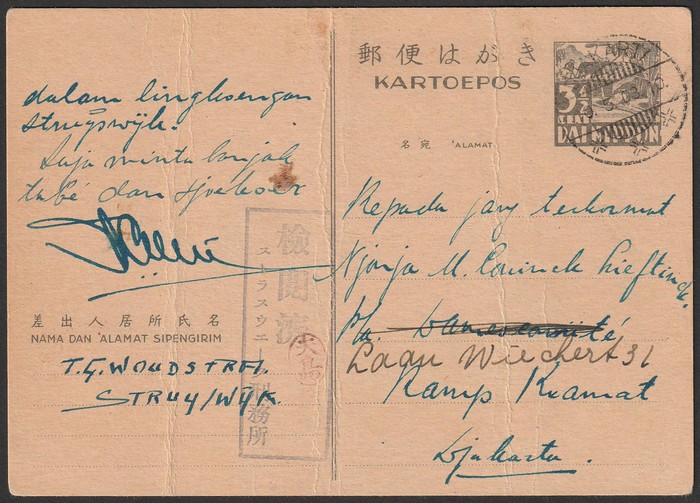 dalam lingkoengan
struyswijk.
Saja minta banjak
tabé dan sjoekoer
差出人居所氏名
NAMA DAN 'ALAMAT SIPENGIRIM
T.G. WOUDSTRA.
STRUYSWYK
検閲済
ストラスウエー
刑務所
郵便はがき
KARTOEPOS
3½
CENT
DAI NIPPON
名宛 'ALAMAT
Kepada jang terhormat
Njonja M.
p/a.
Laan Wiechert 31
Kamp Kramat
Djakarta.